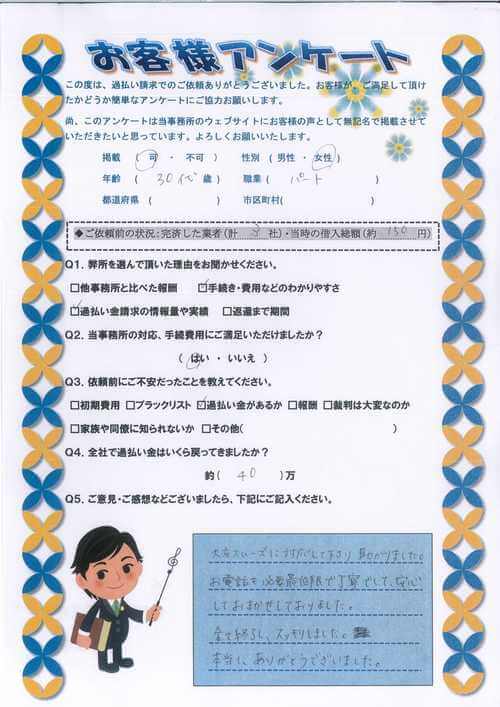 お客様アンケート
この度は、過払い請求でのご依頼ありがとうございました。お客様が、ご満足して頂け
たかどうか簡単なアンケートにご協力お願いします。
尚、このアンケートは当事務所のウェブサイトにお客様の声として無記名で掲載させて
いただきたいと思っています。よろしくお願いいたします。
掲載 ( 可 ・ 不可 ) 性別 ( 男性 ・ 女性 )
年齢 ( 30代 歳 ) 職業 ( パート )
都道府県 ( ) 市区町村( )
◆ご依頼前の状況:完済した業者(計 3 社)・当時の借入総額(約 150 円)
Q1. 弊所を選んで頂いた理由をお聞かせください。
□他事務所と比べた報酬 ☑手続き・費用などのわかりやすさ
☑過払い金請求の情報量や実績 □返還まで期間
Q2. 当事務所の対応、手続費用にご満足いただけましたか?
( はい ・ いいえ )
Q3. 依頼前にご不安だったことを教えてください。
□初期費用 □ブラックリスト ☑過払い金があるか □報酬 □裁判は大変なのか
□家族や同僚に知られないか □その他( )
Q4. 全社で過払い金はいくら戻ってきましたか?
約( 40 )万
Q5. ご意見・ご感想などございましたら、下記にご記入ください。
大変スムーズに対応して下さり 助かりました。
お電話も必要最低限で丁寧でして、安心
しておまかせしておりました。
全て終了し、スッキリしました。
本当に、ありがとうございました。